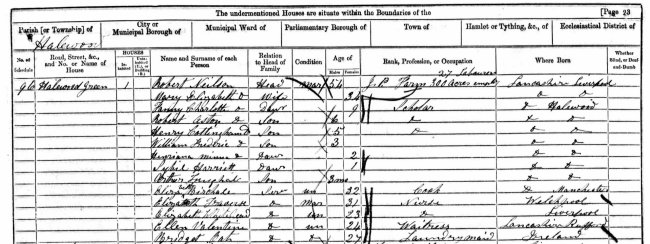 The undermentioned Houses are situate within the Boundaries of the [Page 23
Parish [or Township] of City or Municipal Borough of Municipal Ward of Parliamentary Borough of Town of Hamlet or Tything, &c., of Ecclesiastical District of
Halewood
No. of Schedule Road, Street, &c., and No. or Name of House HOUSES Inhabited Uninhabited (U.), or Building (B.) Name and Surname of each Person Relation to Head of Family Condition Age of Males Females Rank, Profession, or Occupation Where Born Whether Blind, or Deaf-and-Dumb
27 Labourers
96 Halewood Green 1 Robert Neilson Head Mar 54 J.P. Farm 300 acres Lancashire Liverpool
Mary Elizabeth Do Wife 34 Do
Fanny Charlotte Do Daur Scholar Do Halewood
Robert Do Son 6 Do Do Do
Henry Do Son 5 Do Do Do
William Frederic Do Son 3 Do Do
Minna Do Daur 2 Do Do
Sybil Harriett Daur 1 Do Do
Arthur Son 3 mo Do Do
Serv un 32 Cook Do Manchester
Elizabeth Do Mar 31 Nurse Welshpool
Elizabeth Do un 23 Do Liverpool
Ellen Valentine Do un 24 Waitress Lancashire
Bridget Do Do 27 Laundrymaid Ireland